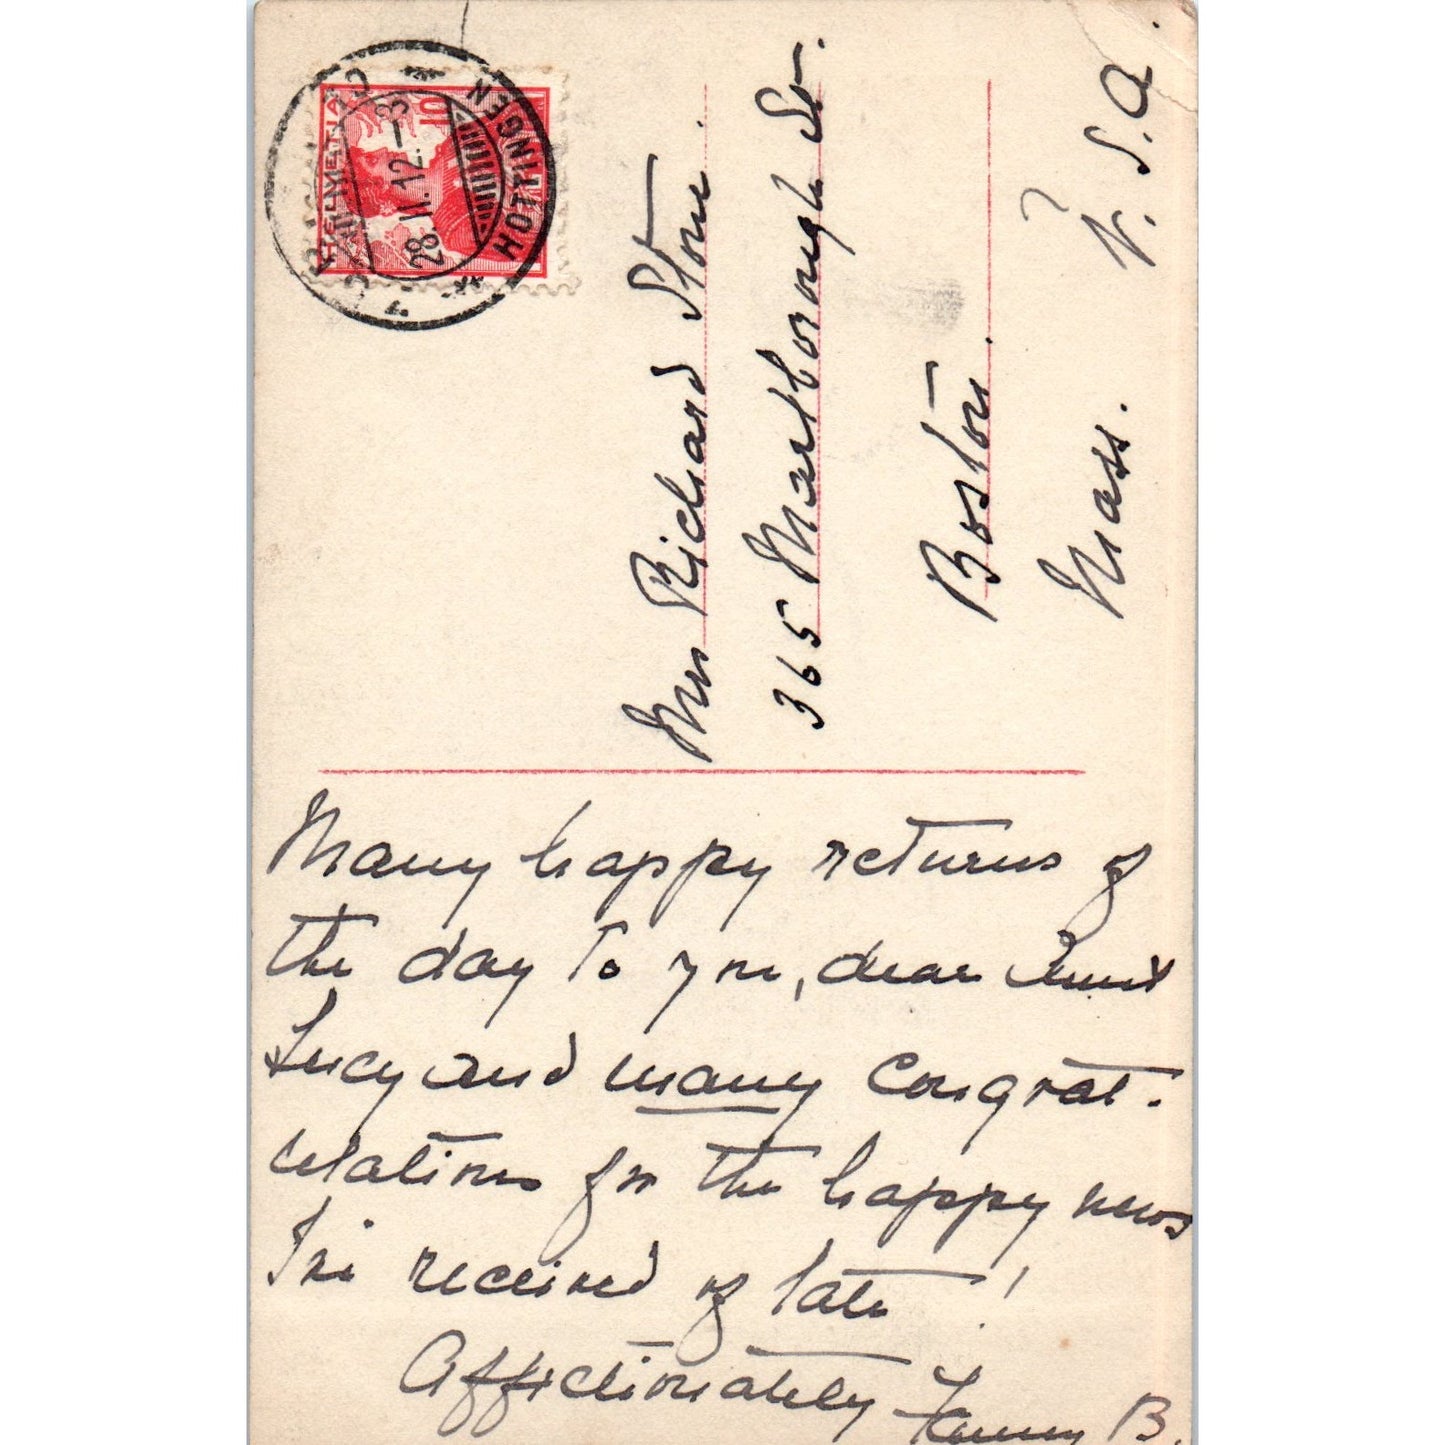 ZÜRICH
HOTTINGEN
28.II.12.-3
HELVETIA
10
Mrs Richard Stone.
365 Marlborough St.
Boston.
Mass.
U.S.A.
Many happy returns of
the day to you, dear Aunt
Lucy and many congrat-
ulations for the happy news
I've received of late!
Affectionately Fanny B.